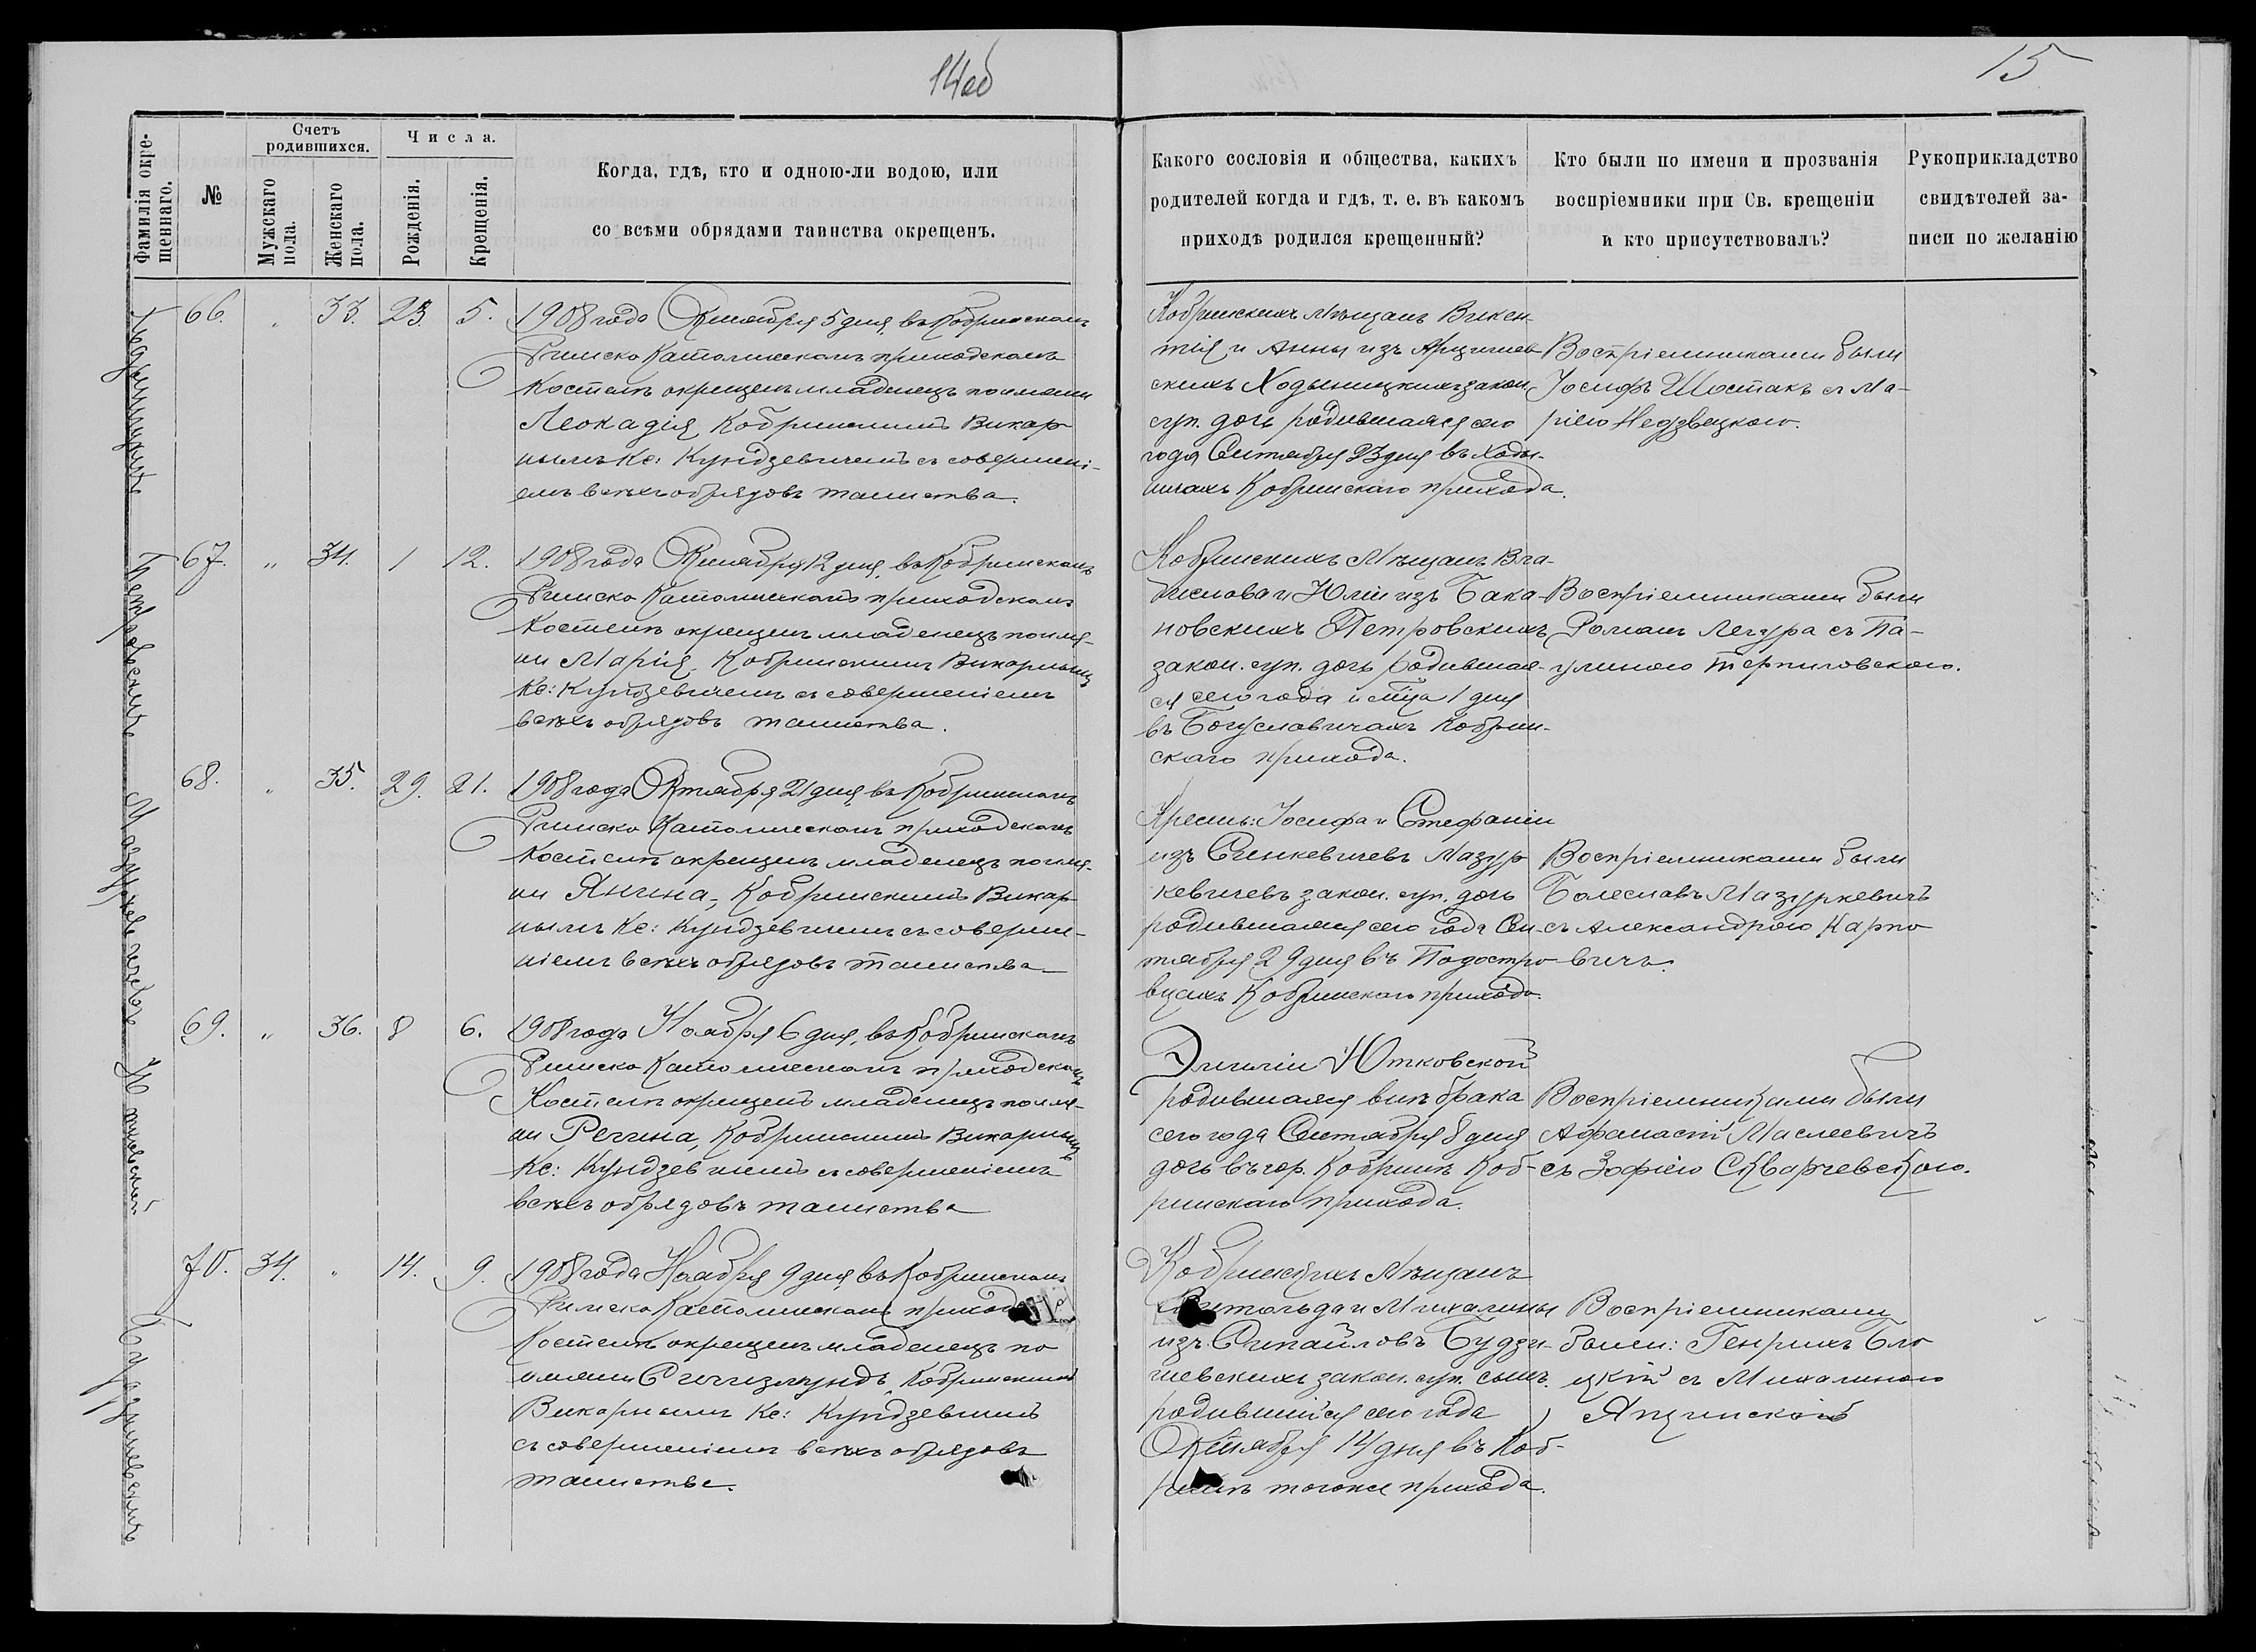 14об
15
Фамилія окре-
щеннаго.
№
Счетъ
родившихся.
Мужскаго
пола.
Женскаго
пола.
Числа.
Рожденія.
Крещенія.
Когда, гдѣ, кто и одною-ли водою, или
со всѣми обрядами таинства окрещенъ.
Какого сословія и общества, какихъ
родителей когда и гдѣ, т. е. въ какомъ
приходѣ родился крещенный?
Кто были по имени и прозванія
воспріемники при Св. крещеніи
и кто присутствовалъ?
Рукоприкладство
свидѣтелей за-
писи по желанію
66. " 33. 23. 5.
1908 года Октября 5 дня, въ Кобринскомъ
Римско Католическомъ приходскомъ
Костелѣ окрещенъ младенецъ по имени
Леокадія Кобринскимъ Викар-
нымъ Кс: Кундзевичемъ съ совершені-
емъ всѣхъ обрядовъ таинства.
Кобринскихъ Мѣщанъ Викен-
тія и Анны изъ
скихъ Ходыницкихъ закон.
суп. дочь родившаяся сего
года Сентября 23 дня въ Ходы-
ничахъ Кобринскаго прихода.
Воспріемниками были
Іосифъ Шостакъ съ Ма-
ріею Недзвецкою.
67. " 34. 1 12.
Петровскихъ
1908 года Октября 12 дня, въ Кобринскомъ
Римско Католическомъ приходскомъ
Костелѣ окрещенъ младенецъ по име-
ни Марія, Кобринскимъ Викарнымъ
Кс: Кундзевичемъ съ совершеніемъ
всѣхъ обрядовъ таинства.
Кобринскихъ Мѣщанъ Вла-
дислава и Юліи изъ Бака-
новскихъ Петровскихъ
закон. суп. дочь родившая-
ся сего года и мѣца 1 дня
въ Богуславичахъ Кобрин-
скаго прихода.
Воспріемниками были
Романъ Легура съ Па-
улиною Терпиловскою.
68. " 35. 29. 21.
Мазуркевичевъ
1908 года Октября 21 дня въ Кобринскомъ
Римско Католическомъ приходскомъ
Костелѣ окрещенъ младенецъ по име-
ни Янина, Кобринскимъ Викар-
нымъ Кс: Кундзевичемъ съ соверше-
ніемъ всѣхъ обрядовъ таинства
Крестъ: Іосифа и Стефаніи
изъ Сенкевичевъ Мазур-
кевичевъ закон. суп. дочь
родившаяся сего года Сен-
тября 29 дня въ Подостро-
вцахъ Кобринскаго прихода.
Воспріемниками были
Болеславъ Мазуркевичъ
съ Александрою Карпо-
вичъ.
69. " 36. 8 6.
Ютковской
1908 года Ноября 6 дня, въ Кобринскомъ
Римско Католическомъ приходскомъ
Костелѣ окрещенъ младенецъ по име-
ни Регина, Кобринскимъ Викарнымъ
Кс: Кундзевичемъ съ совершеніемъ
всѣхъ обрядовъ таинства
Эмиліи Ютковской
родившаяся внѣ брака
сего года Сентября 8 дня
дочь въ гор. Кобринѣ Коб-
ринскаго прихода.
Воспріемниками были
Афанасій Маслеевичъ
съ Зофіею Скварчевскою.
70. 34. " 14. 9.
Будзишевскихъ
1908 года Ноября 9 дня въ Кобринскомъ
Римско Католическомъ
Костелѣ окрещенъ младенецъ по
имени Сигизмундъ, Кобринскимъ
Викарнымъ Кс: Кундзевичемъ
съ совершеніемъ всѣхъ обрядовъ
таинства.
Кобринскихъ Мѣщанъ
Витольда и Михалины
изъ Будзи-
шевскихъ закон. суп. сынъ.
родившійся сего года
Октября 14 дня въ Коб-
ринѣ тогоже прихода.
Воспріемниками
были: Генрихъ Бло
цкій съ Михалиною